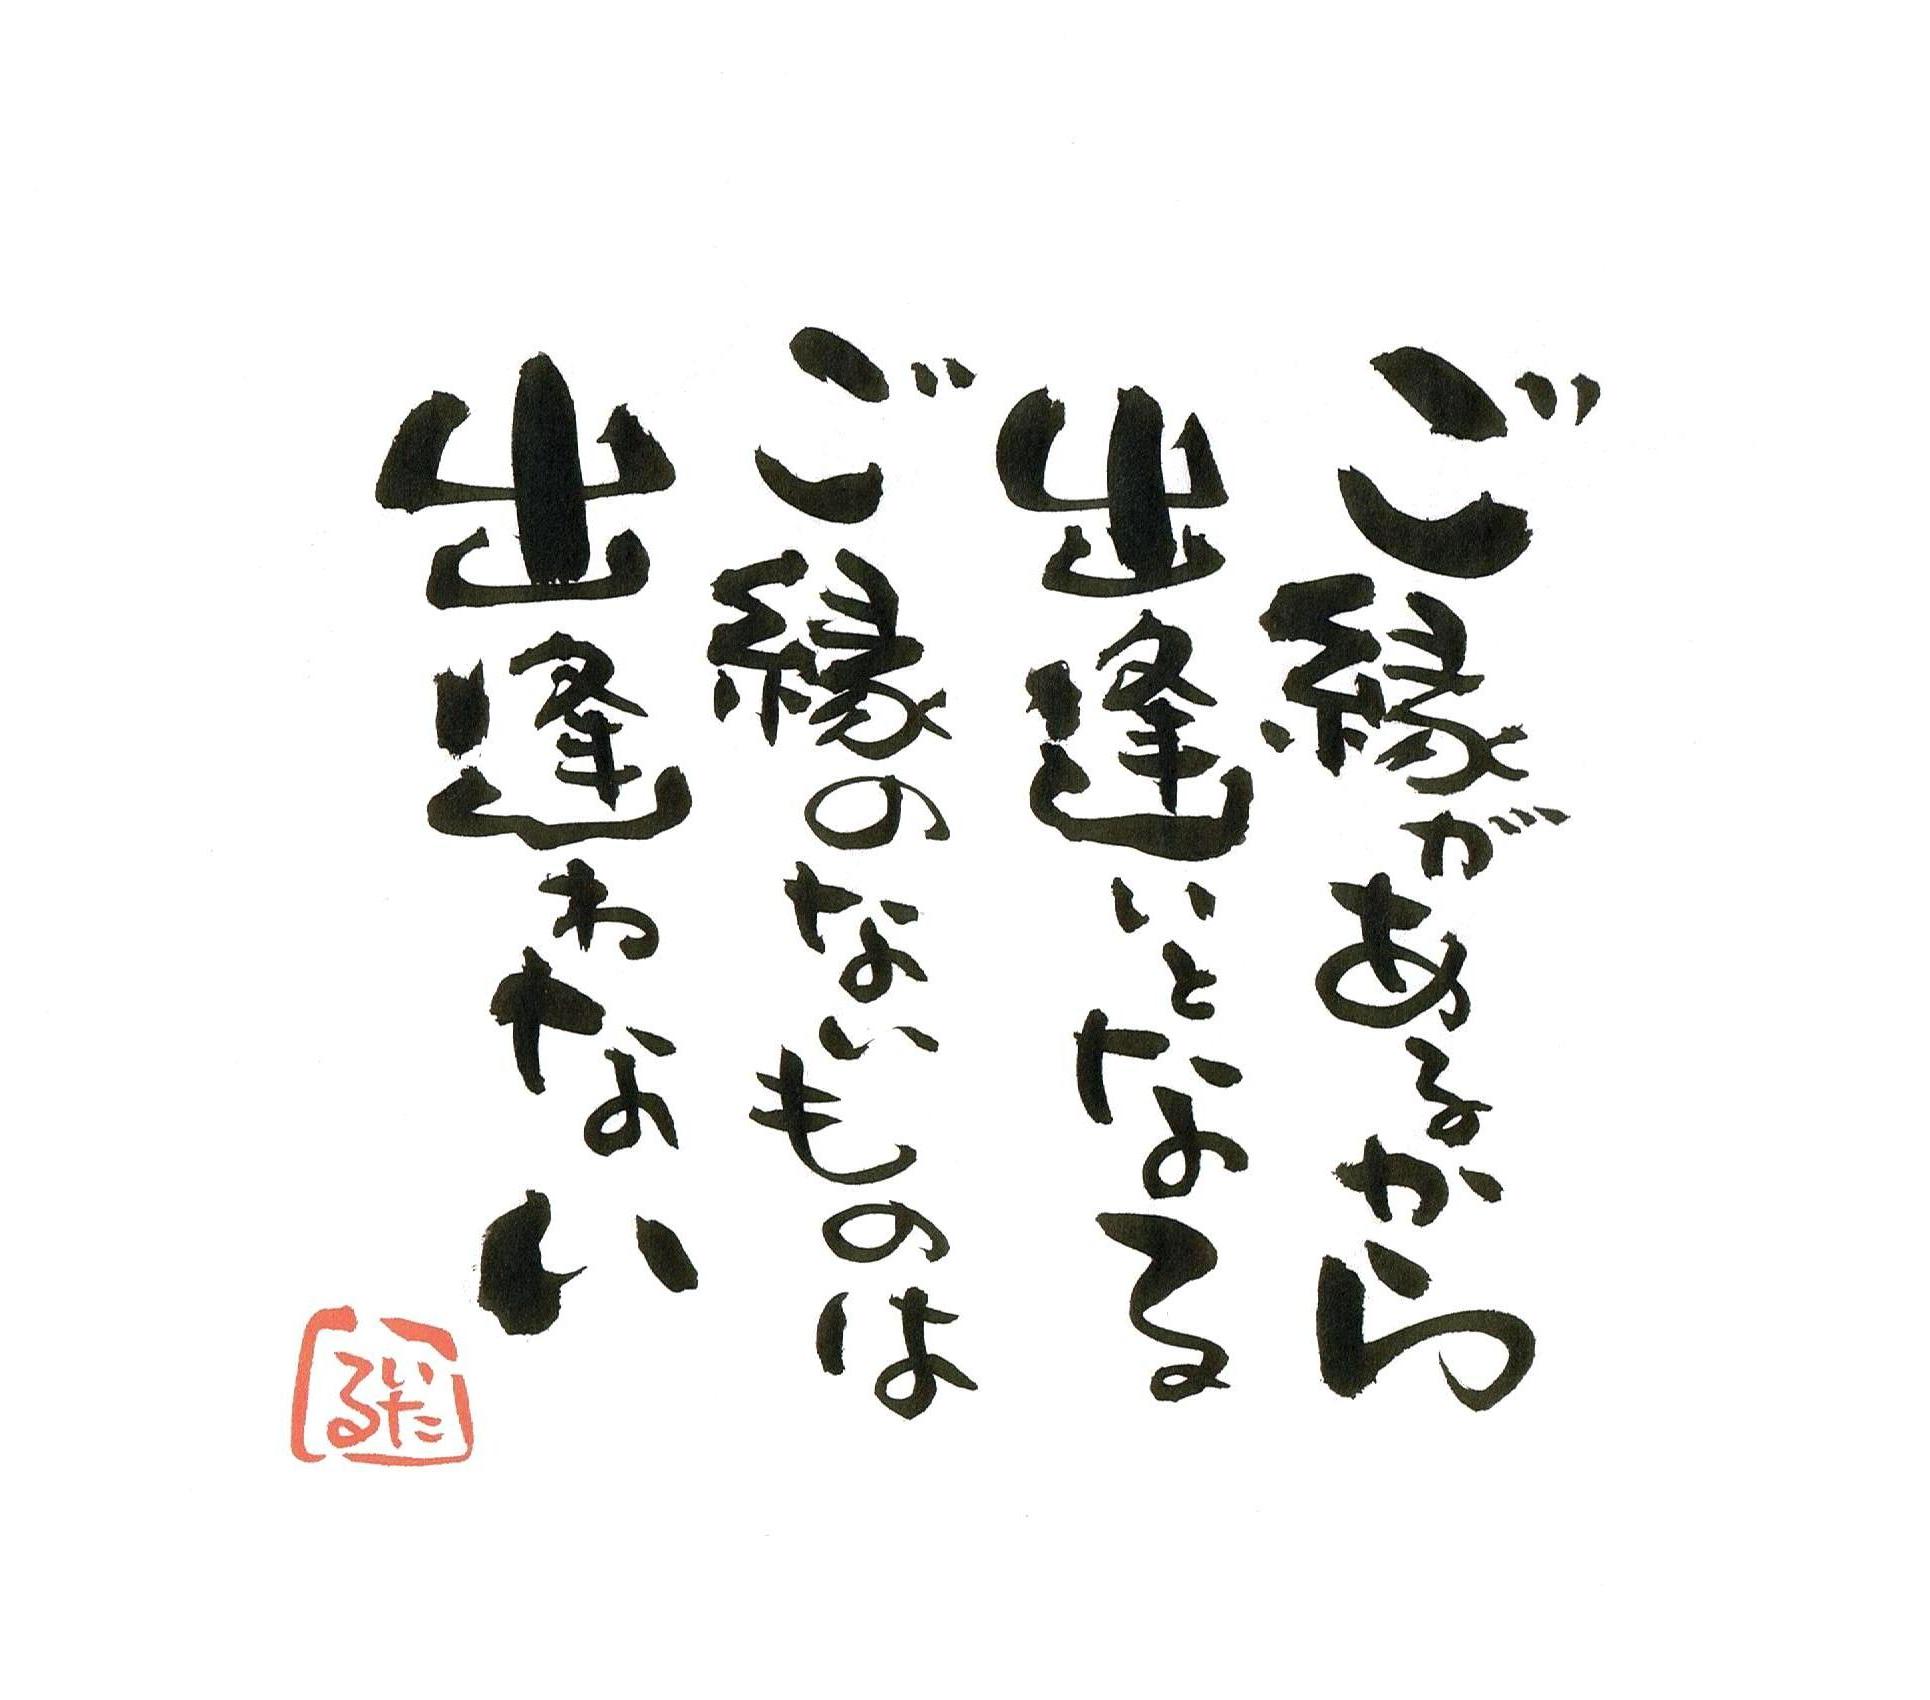 ご縁があるから
出逢いとなる
ご縁のないものは
出逢わない
いたる